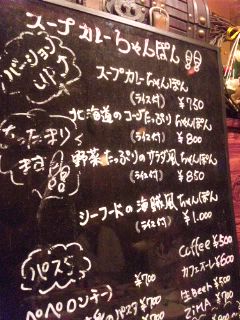 スープカレーちゃんぽん!!
バージョン
スープカレーちゃんぽん
(ライス付) ¥750
北海道のコーンたっぷりちゃんぽん
(ライス付) ¥800
あったまり
ます!!
野菜たっぷりのサラダ風ちゃんぽん
(ライス付) ¥850
シーフードの海賊風ちゃんぽん
(ライス付) ¥1.000
Coffee ¥500
カフェオーレ ¥600
パスタ
生Beer ¥500
ペペロンチーノ ¥700
ZiMA ¥700
パスタ ¥700